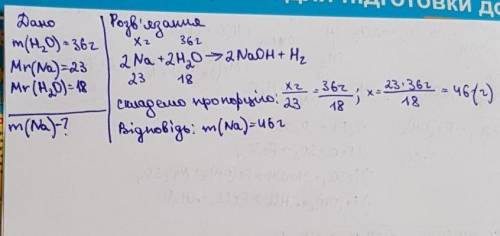 ПІДГОТОВКИ ДО
Дано
m(H₂O)=36г
Mr(Na)=23
Mr(H₂O)=18
m(Na)-?
Розв'язання
xг 36г
2Na+2H₂O→2NaOH+H₂
23 18
складемо пропорцію: xг/23 = 36г/18; x= 23·36г/18 = 46(г)
Відповідь: m(Na)=46г